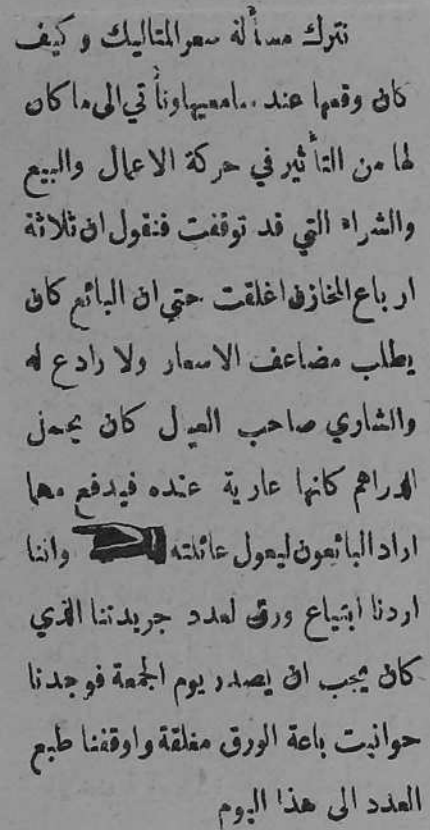 نترك مسألة سعر المتاليك وكيف
كان وقعها عند سامعيها ونأتي الى ما كان
لها من التأثير في حركة الاعمال والبيع
والشراء التي قد توقفت فنقول ان ثلاثة
ارباع المخازن اغلقت حتي ان البائع كان
يطلب مضاعف الاسعار ولا رادع له
والشاري صاحب العيال كان يحمل
الدراهم كانها عارية عنده فيدفع مهما
اراد البائعون ليعول عائلته واننا
اردنا ابتياع ورق لعدد جريدتنا الذي
كان يجب ان يصدر يوم الجمعة فوجدنا
حوانيت باعة الورق مغلقة واوقفنا طبع
العدد الى هذا اليوم